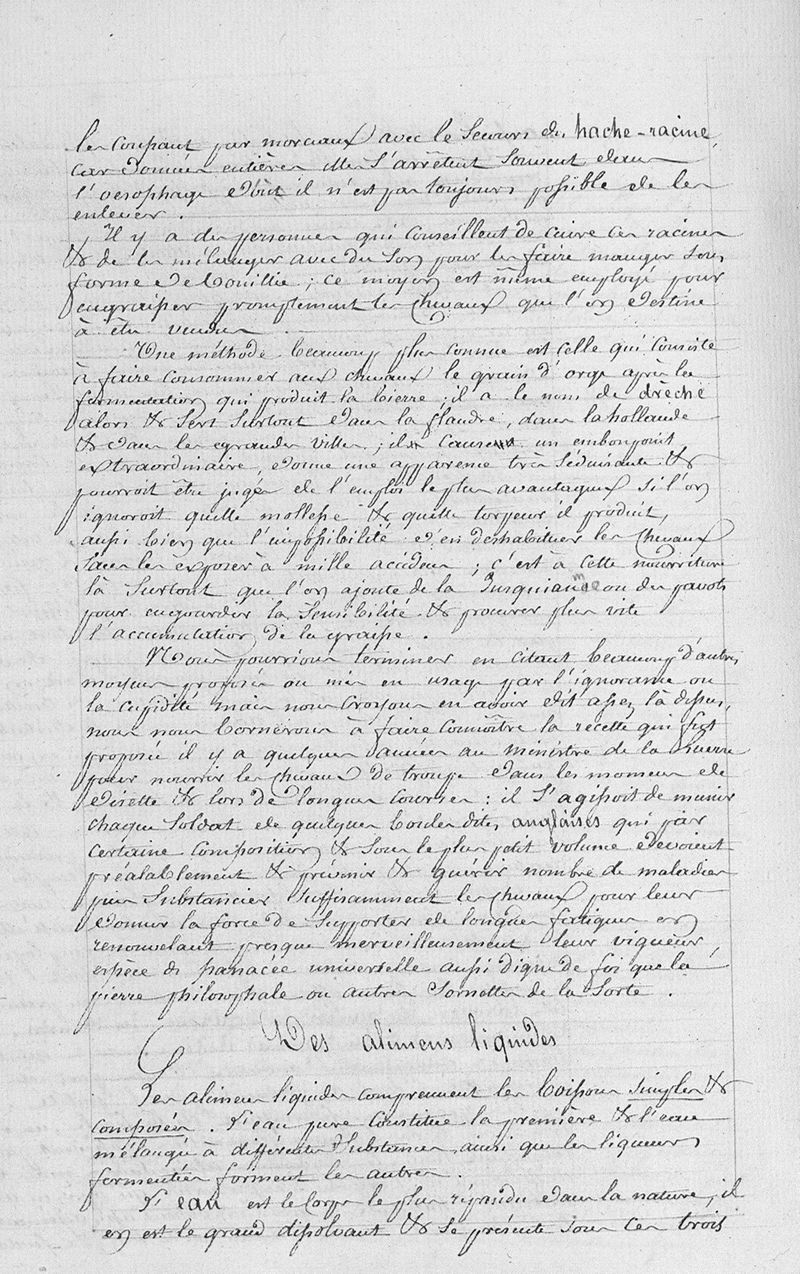 les coupant par morceaux avec le secours du hache-racine
car données entières elles s'arrêtent souvent dans
l'oesophage d'où il n'est pas toujours possible de les
enlever.
Il y a des personnes qui conseillent de cuire ces racines
& de les mélanger avec du son pour les faire manger sous
forme de bouillie; ce moyen est même employé pour
engraisser promptement les chevaux que l'on destine
à être vendus
Une méthode beaucoup plus connue est celle qui consiste
à faire consommer aux chevaux le grain d'orge après la
fermentation qui produit la bierre; il a le nom de drèche
alors & sert surtout dans la flandre, dans la hollande
& dans les grandes villes; il cause un embonpoint
extraordinaire, donne une apparence très séduisante &
pourroit être jugée de l'emploi le plus avantageux si l'on
ignoroit quelle mollesse & quelle torpeur il produit,
aussi bien que l'impossibilité d'en deshabituer les chevaux
sans les exposer à mille accidens; c'est à cette nourriture
là surtout que l'on ajoute de la Jusquiame ou des pavots
pour engourdir la sensibilité & procurer plus vite
l'accumulation de la graisse.
Nous pourrions terminer en citant beaucoup d'autres
moyens proposés ou mis en usage par l'ignorance ou
la cupidité mais nous croyons en avoir dit assez là dessus,
nous nous bornerons à faire connoître la recette qui fut
proposée il y a quelques années au ministre de la Guerre
pour nourrir les chevaux de troupe dans les momens de
disette & lors de longues courses: il s'agissoit de munir
chaque soldat de quelques boules dites anglaises qui par
certaine composition & sous le plus petit volume devoient
préalablement & prévenir & guérir nombre de maladies
puis substancier suffisamment les chevaux pour leur
donner la force de supporter de longues fatigues en
renouvelant presque merveilleusement leur vigueur,
espèce de panacée universelle aussi digne de foi que la
pierre philosophale ou autres sornettes de la sorte.
Des alimens liquides
Les alimens liquides comprennent les boissons simples &
composées. L'eau pure constitue la première & l'eau
mélangée à différentes substances, ainsi que les liqueurs
fermentées forment les autres.
L'eau est le corps le plus répandu dans la nature, il
en est le grand dissolvant & se présente sous ces trois